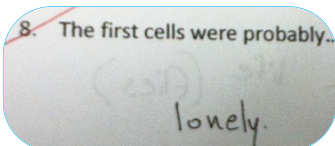 8. The first cells were probably..
lonely.